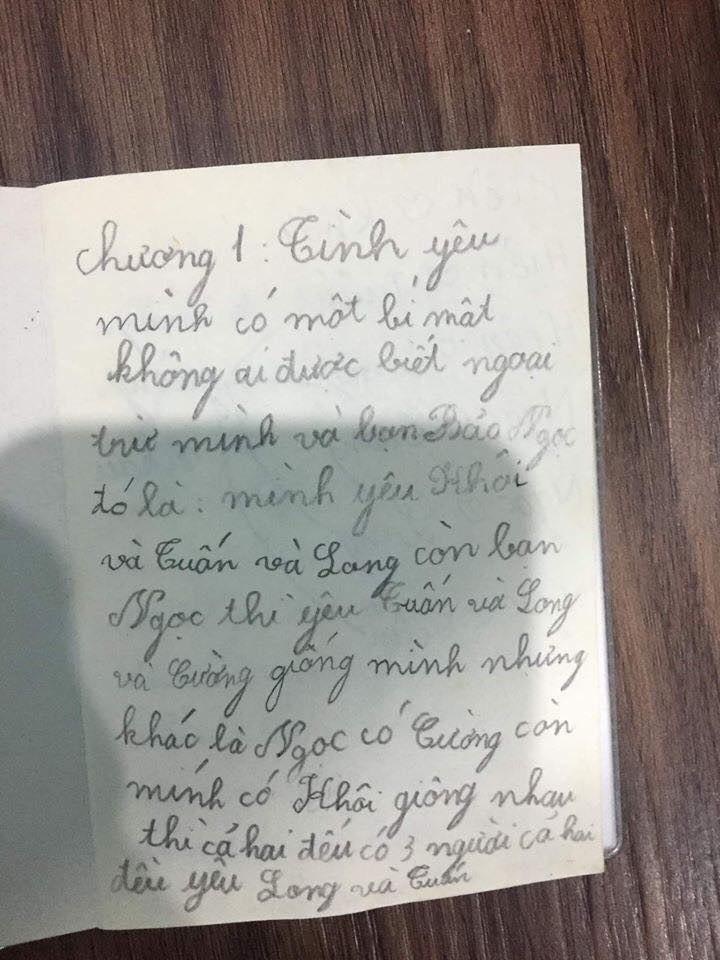 Chương 1 : Tình yêu
mình có một bí mật
không ai được biết ngoại
trừ mình và bạn Bảo Ngọc
đó là : mình yêu Khôi
và Tuấn và Long còn bạn
Ngọc thì yêu Tuấn và Long
và Cường giống mình nhưng
khác là Ngọc có Cường còn
mính có Khôi giông nhau
thì cả hai đếu có 3 người cả hai
đều yêu Long và Tuấn